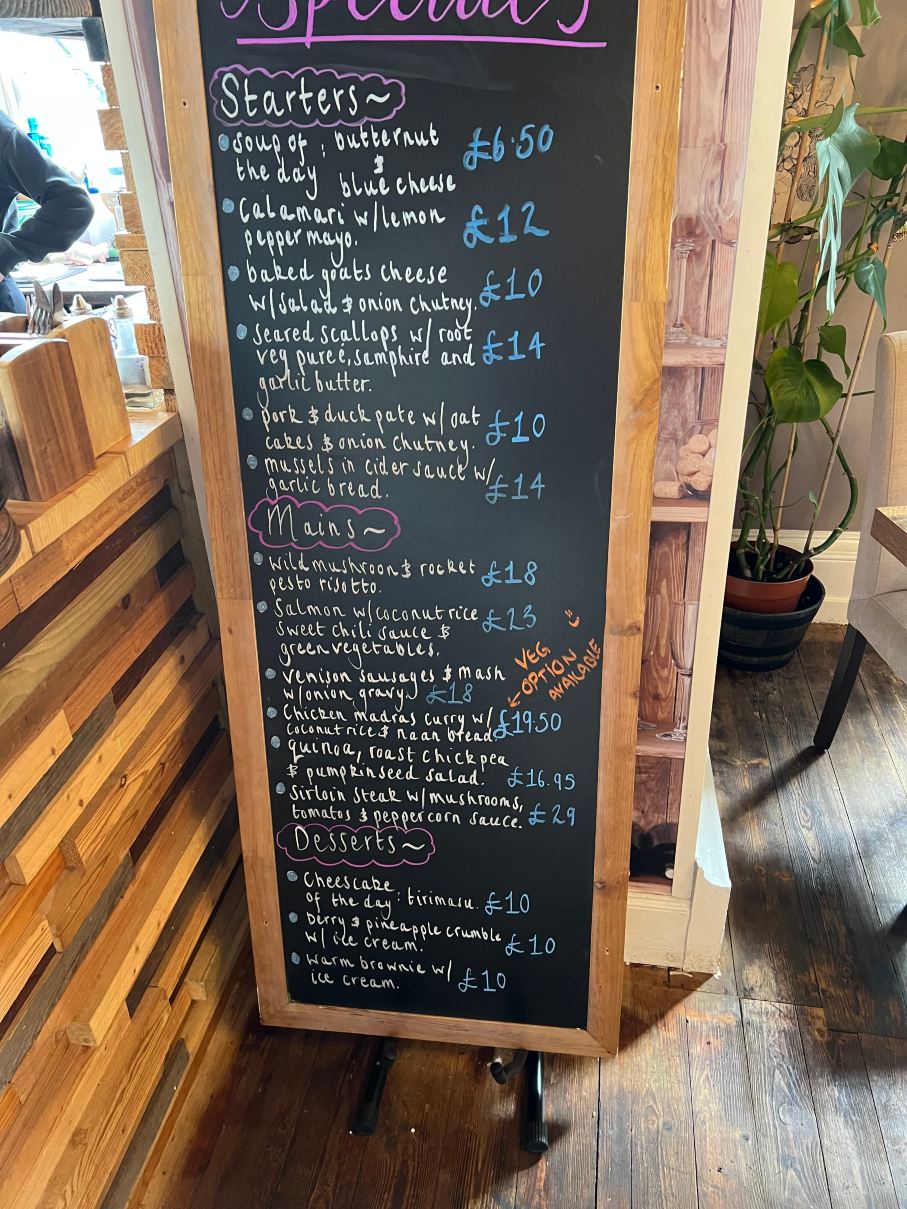 Specials
Starters~
soup of : butternut £6.50
the day &
blue cheese
Calamari w/lemon £12
pepper mayo.
baked goats cheese £10
w/salad & onion chutney.
seared scallops w/ root £14
veg puree, samphire and
garlic butter.
pork & duck pate w/ oat £10
cakes & onion chutney.
mussels in cider sauce w/ £14
garlic bread.
Mains~
wild mushroom & rocket £18
pesto risotto.
Salmon w/coconut rice £23
sweet chili sauce &
green vegetables.
venison sausages & mash
w/onion gravy £18
VEG
←OPTION
AVAILABLE
Chicken madras curry w/ £19.50
coconut rice & naan bread
quinoa, roast chickpea
& pumpkinseed salad. £16.95
Sirloin steak w/mushrooms,
tomatos & peppercorn sauce. £29
Desserts~
Cheescake
of the day: tirimasu. £10
Berry & pineapple crumble
w/ ice cream. £10
warm brownie w/ £10
ice cream.